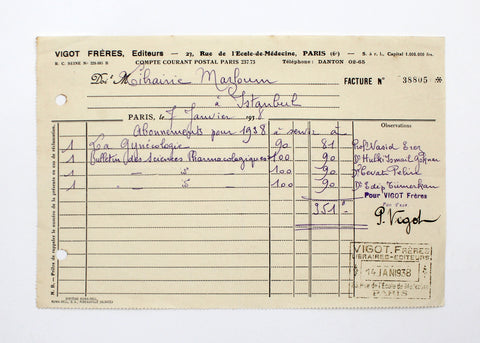 VIGOT FRÈRES, Editeurs — 27, Rue de l'Ecole-de-Médecine, PARIS (6e) — S. à r. l. Capital 1.000.000 frs.
COMPTE COURANT POSTAL PARIS 237.73 Téléphone: DANTON 02-65
Doit M Librairie
FACTURE N° 38805
à Istanbul
PARIS, le 7 Janvier 1938
Abonnements pour 1938 à servir à
Observations
1 La Gynécologie 90 81 Prof Nasid Erez
1 Bulletin des Sciences Pharmacologiques 100 90 Dr Hulki Ismail
1 — d° — 100 90 Dr Cevat
1 — d° — 100 90 Dr Edip
351
Pour VIGOT Frères
P. Vigot
VIGOT FRÈRES
LIBRAIRES-EDITEURS
14 JAN 1938
Rue de l'École de Médecine
PARIS
N. B. - Prière de rappeler le numéro de la présente en cas de réclamation.